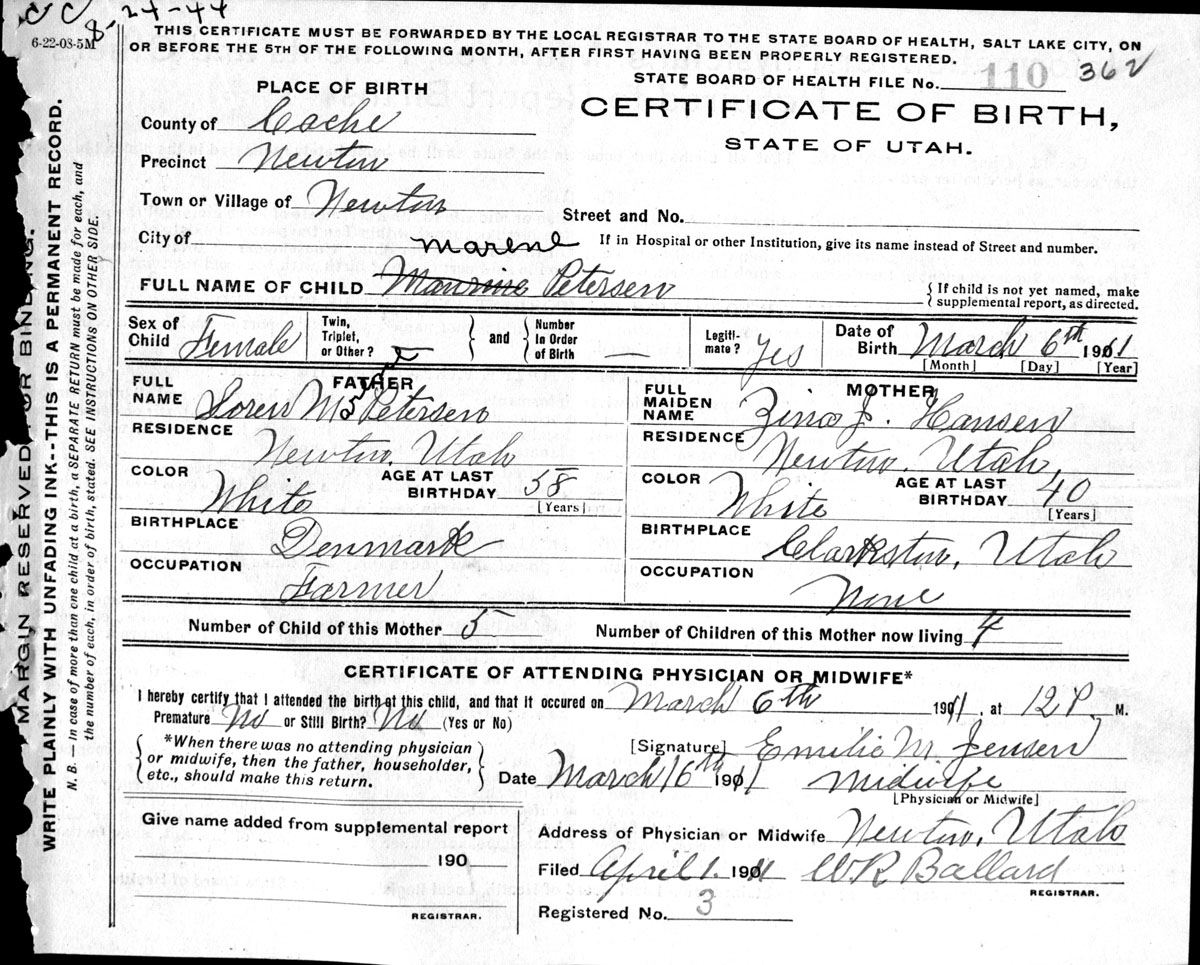 CC 8-24-44
6-22-08-5M
THIS CERTIFICATE MUST BE FORWARDED BY THE LOCAL REGISTRAR TO THE STATE BOARD OF HEALTH, SALT LAKE CITY, ON
OR BEFORE THE 5TH OF THE FOLLOWING MONTH, AFTER FIRST HAVING BEEN PROPERLY REGISTERED.
STATE BOARD OF HEALTH FILE No. 110 362
PLACE OF BIRTH
CERTIFICATE OF BIRTH,
STATE OF UTAH.
County of Cache
Precinct Newton
Town or Village of Newton
Street and No.
City of
If in Hospital or other Institution, give its name instead of Street and number.
marene
FULL NAME OF CHILD Petersen
{ If child is not yet named, make
supplemental report, as directed.
Sex of Child Female
Twin, Triplet, or Other?
and
Number In Order of Birth —
Legiti-mate? Yes
Date of Birth March 6th 1911
[Month] [Day] [Year]
FATHER
FULL NAME Soren M Petersen
RESIDENCE Newton, Utah
COLOR White
AGE AT LAST BIRTHDAY 58
[Years]
BIRTHPLACE Denmark
OCCUPATION Farmer
MOTHER
FULL MAIDEN NAME Zina J. Hansen
RESIDENCE Newton, Utah,
COLOR White
AGE AT LAST BIRTHDAY 40
[Years]
BIRTHPLACE Clarkston, Utah
OCCUPATION None
Number of Child of this Mother 5
Number of Children of this Mother now living 4
CERTIFICATE OF ATTENDING PHYSICIAN OR MIDWIFE*
I hereby certify that I attended the birth of this child, and that it occured on March 6th 1911, at 12 P. M.
Premature No or Still Birth? No (Yes or No)
*When there was no attending physician
or midwife, then the father, householder,
etc., should make this return.
[Signature] Emilie M. Jensen
Date March 16th 1911 Midwife
[Physician or Midwife]
Give name added from supplemental report
190
REGISTRAR.
Address of Physician or Midwife Newton, Utah
Filed April 1. 1911 WR Ballard
REGISTRAR.
Registered No. 3
MARGIN RESERVED FOR BINDING.
WRITE PLAINLY WITH UNFADING INK--THIS IS A PERMANENT RECORD.
N. B. — In case of more than one child at a birth, a SEPARATE RETURN must be made for each, and
the number of each, in order of birth, stated. SEE INSTRUCTIONS ON OTHER SIDE.